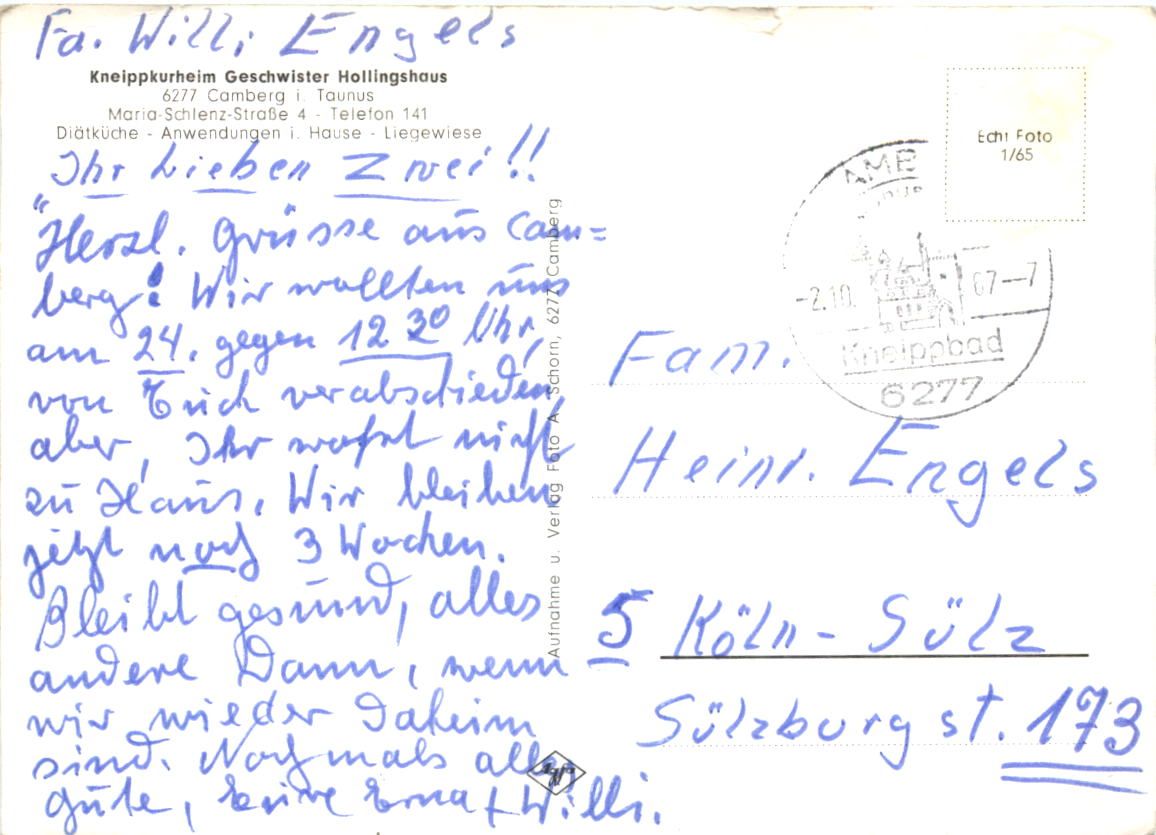 Fa. Willi Engels
Kneippkurheim Geschwister Hollingshaus
6277 Camberg i. Taunus
Maria-Schlenz-Straße 4 - Telefon 141
Diätküche - Anwendungen i. Hause - Liegewiese
Ihr Lieben Zwei!!
"Herzl. Grüsse aus Cam=
berg! Wir wollten uns
am 24. gegen 12 30 Uhr,
von Euch verabschieden,
aber, Ihr wahrt nicht
zu Haus. Wir bleiben
jetzt noch 3 Wochen.
Bleibt gesund, alles
andere Dann, wenn
wir wieder Daheim
sind. Nochmals alles
gute, Eure Erna + Willi.
Aufnahme u. Verlag Foto A. Schorn, 6277 Camberg
Agfa
Echt Foto
1/65
-2.10. 67-7
Kneippbad
6277
Fam.
Heinr. Engels
5 Köln-Sülz
Sülzburg st. 173